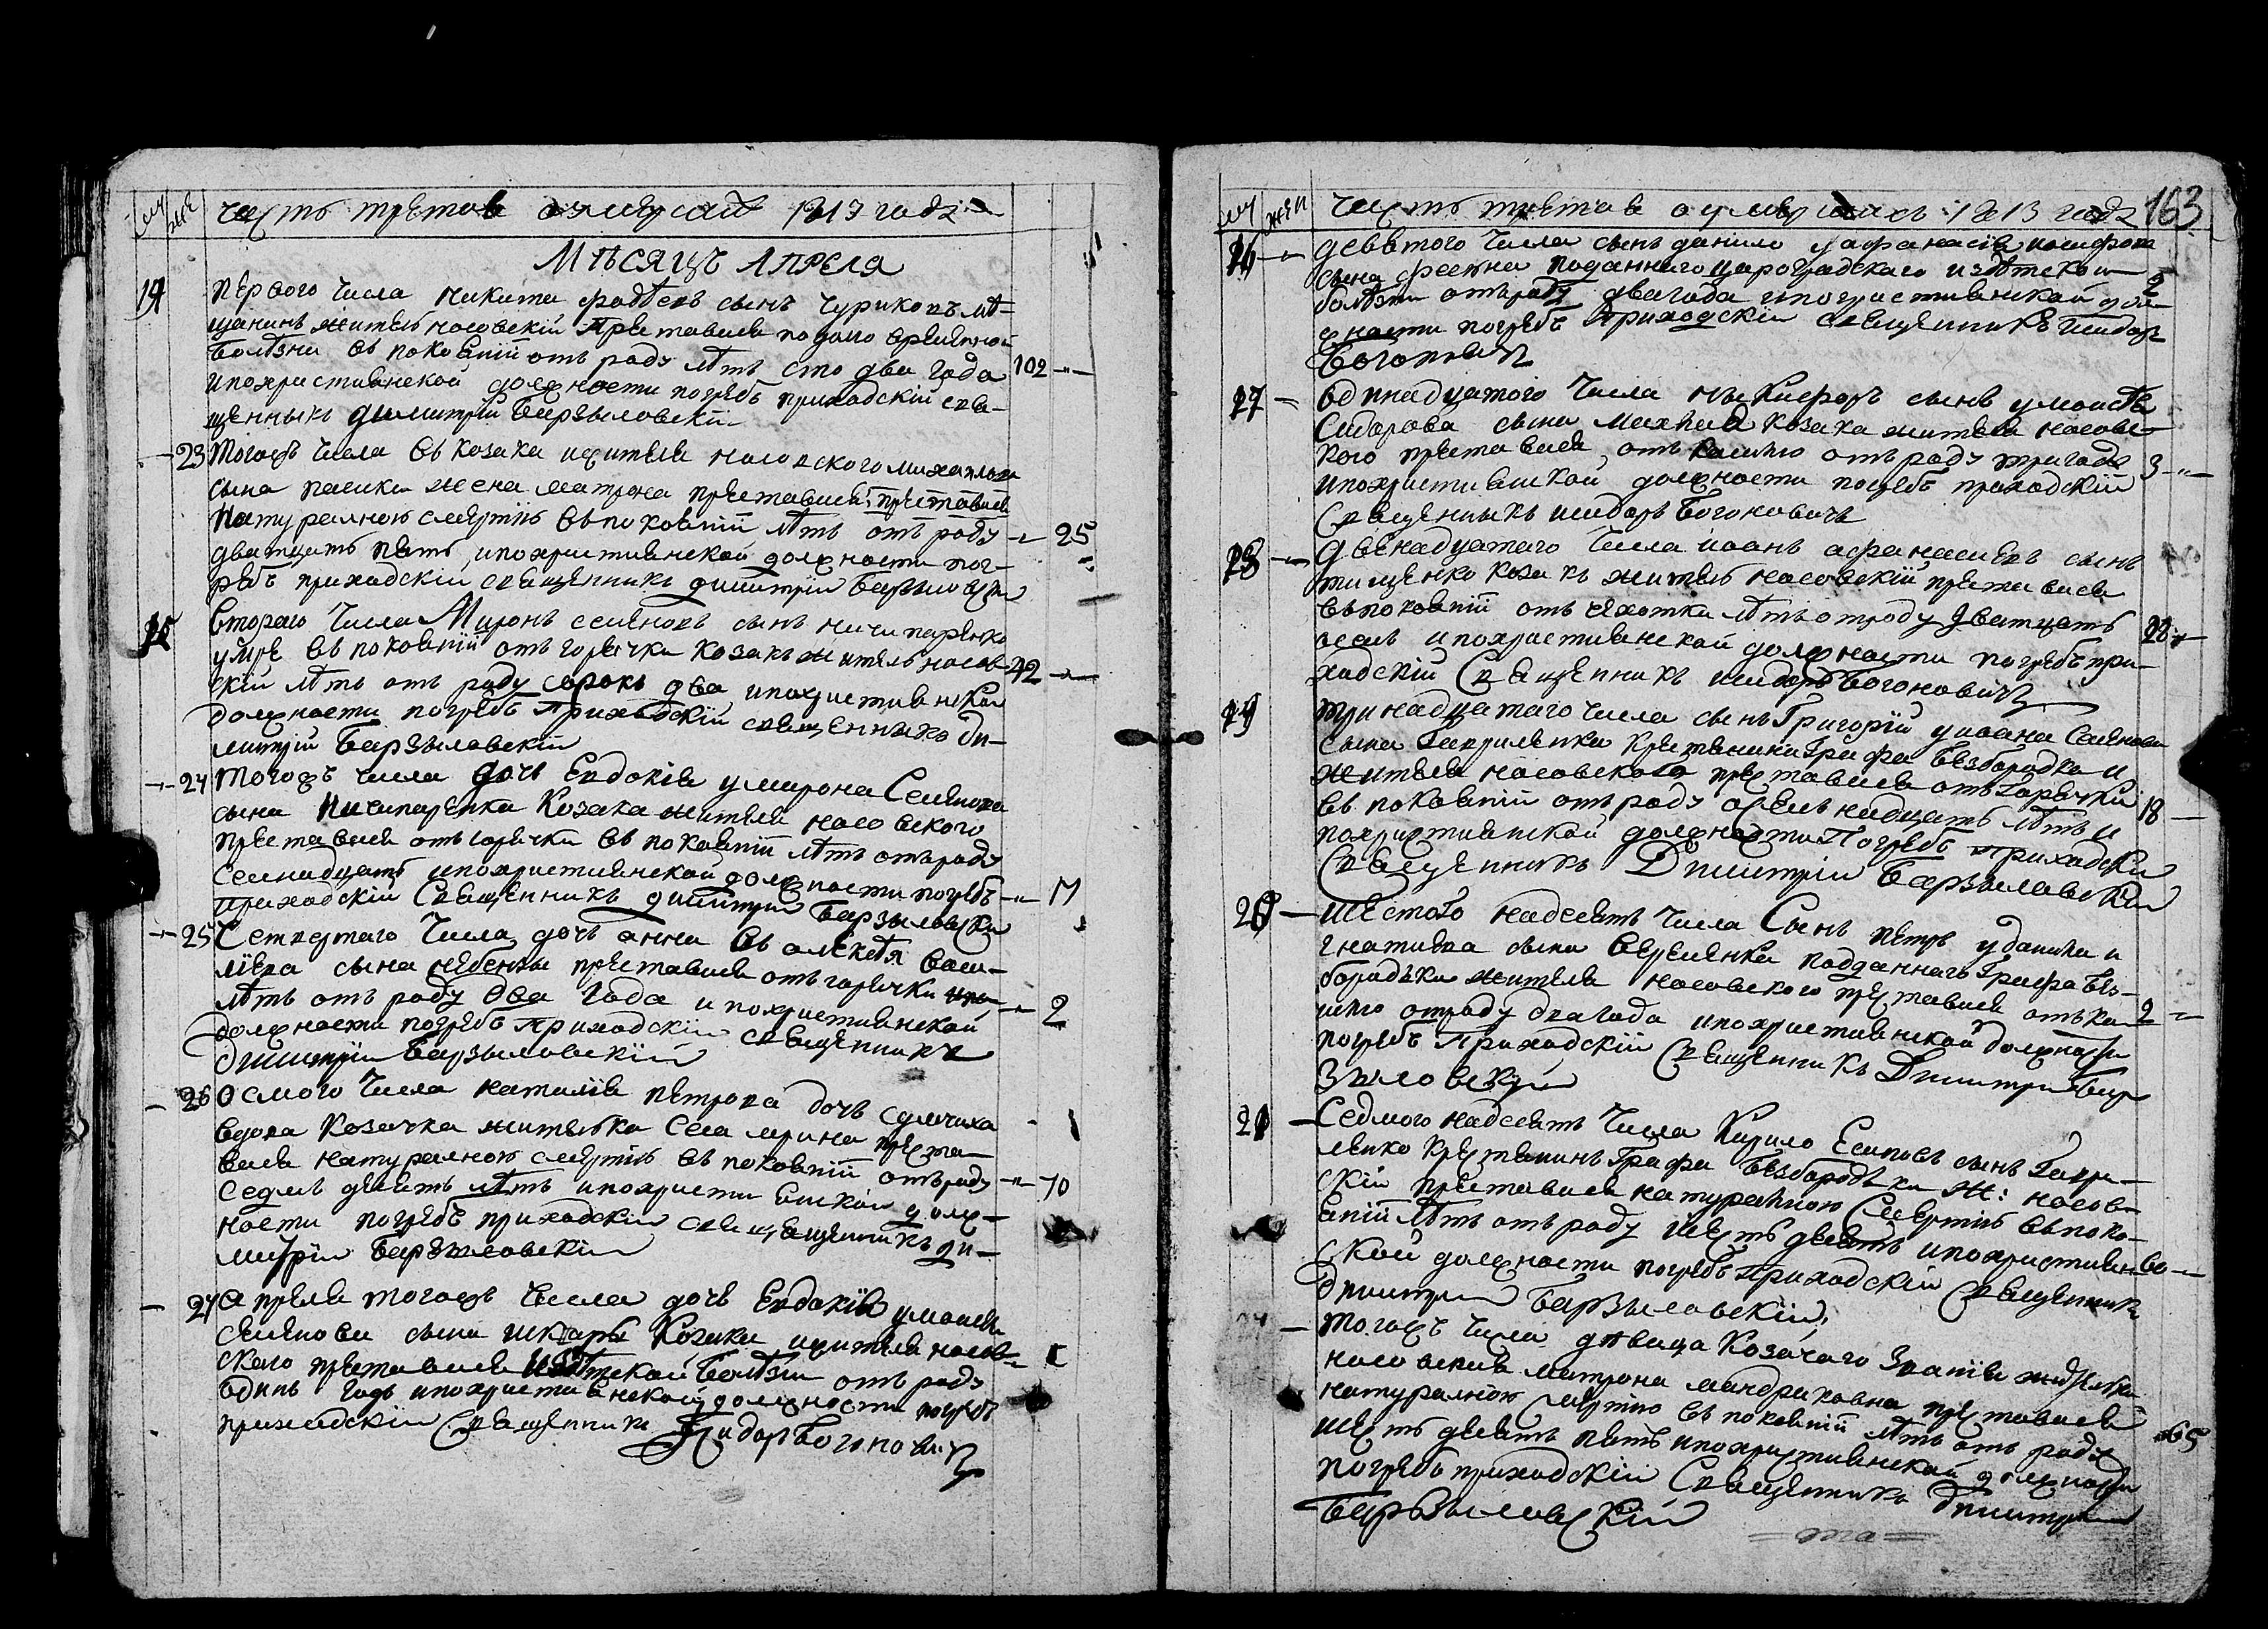 му же часть третая о умерсихъ 1813 года
Мѣсяцъ Апреля
14 первого числа Никита фадѣевъ сынъ Чуриковъ мѣ-
щанинъ житель носовскій преставися по долго времѣнной
болѣзни въ покояніи отъ роду лѣтъ сто два года 102
и по християнской должности погребъ приходскій свя-
щенныкъ димитрій Барзыловскій
23 Тогожъ числа въ козака жителя носовского михайлова
сына жена матрона преставися преставися
натуралною смертію въ покояніи лѣтъ отъ роду 25
дватцать пять, и по християнской должности пог-
ребъ приходскій священникъ димитрій Барзыловскій
15 второго числа Миронъ семіоновъ сынъ ничипаренко
умре въ покояніи отъ горячки козакъ житель носов- 42
скій лѣтъ отъ роду сорокъ два и по християнской
должности погребъ приходскій священныкъ ди-
митрій Барзыловскій
24 Тогожъ числа дочь Евдокія у мирона Семіонова
сына ничипаренка козака жителя носовского
преставися отъ горячки въ покояніи лѣтъ отъ роду
семнадцать и по християнской должности погребъ 17
приходскій священникъ димитрій Барзыловскій
25 Четвертаго числа дочь анна въ алексѣя васи-
ліева сына преставися отъ горячки
лѣтъ отъ роду два года и по християнской 2
должности погребъ приходскій священникъ
димитрій Барзыловскій
26 осмого числа наталія петрова дочь
вдова козачка жителка села преста-
вися натуралною смертію въ покояніи отъ роду
седмъ десятъ лѣтъ и по християнской долж- 70
ности погребъ приходскій священникъ ди-
митрій Барзыловскій
27 апреля тогожъ числа дочь Евдокія у моисея
семіонова сына козака жителя носов- 1
ского преставися дѣтской болѣзни отъ роду
одинъ годъ и по християнской должности погребъ
приходскій священникъ Исидоръ Богоновичъ
163
му жен часть третая о умерсихъ 1813 года
16 девятого числа сынъ данило у афанасія
сына подданнаго из дѣтской 2
болѣзни отъ роду два года и по християнской дол-
жности погребъ приходскій священникъ Исидоръ
Богоновичъ
17 одинадцатого числа Никифоръ сынъ у моисея
Сидорова сына козака жителя носовс-
кого преставися отъ кашлю отъ роду три года 3
и по християнской должности погребъ приходскій
священныкъ исидоръ Богоновичъ
18 двенадцатого числа иоанъ афанасиевъ сынъ
тищенко козакъ житель носовскій преставися
въ покояніи отъ чехотки лѣтъ отроду дватцать 28
осемъ и по християнской должности погребъ при-
ходскій священникъ исидоръ Богоновичъ
19 тринадцатаго числа сынъ Григорій у иоана Семіонова
сына Гавриленка крестянина Графа Безбородка и
жителя носовского преставися отъ горячки
въ покояніи отъ роду осемнадцать лѣтъ и 18
по християнской должности погребъ приходскій
священникъ Димитрій Барзыловскій
20 шестого надесять числа сынъ петръ у данила и
гнатиева сына Веремѣнка подданнаго Графа Без-
бородька жителя носовского преставися отъ каш- 2
лю отроду два года и по християнской должности
погребъ приходскій священникъ Димитрій Бар-
зыловскій
21 Седмого надесять числа Кирило Есиповъ сынъ Гаври-
ленко крестянинъ Графа Безбородька ж: носов-
скій преставися натуралною смертію въ поко-
яніи лѣтъ отъ роду шесть десятъ и по християн- 60
ской должности погребъ приходскій священникъ
Димитрій Барзыловскій
Тогожъ числа дѣвица козачаго званія жителка
носовская матрона мандриковна преставися
натуралною смертію въ покояніи лѣтъ отъ роду
шесть десятъ пять и по християнской должности 65
погребъ приходскій священникъ Димитрій
Барзыловскій